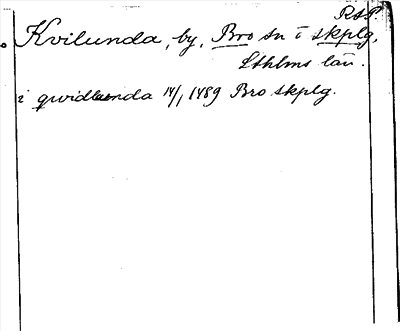 RAP.
Kvilunda, by, Bro sn i skplg,
Sthlms län.
i qwidlunda 14/1 1489 Bro skplg.